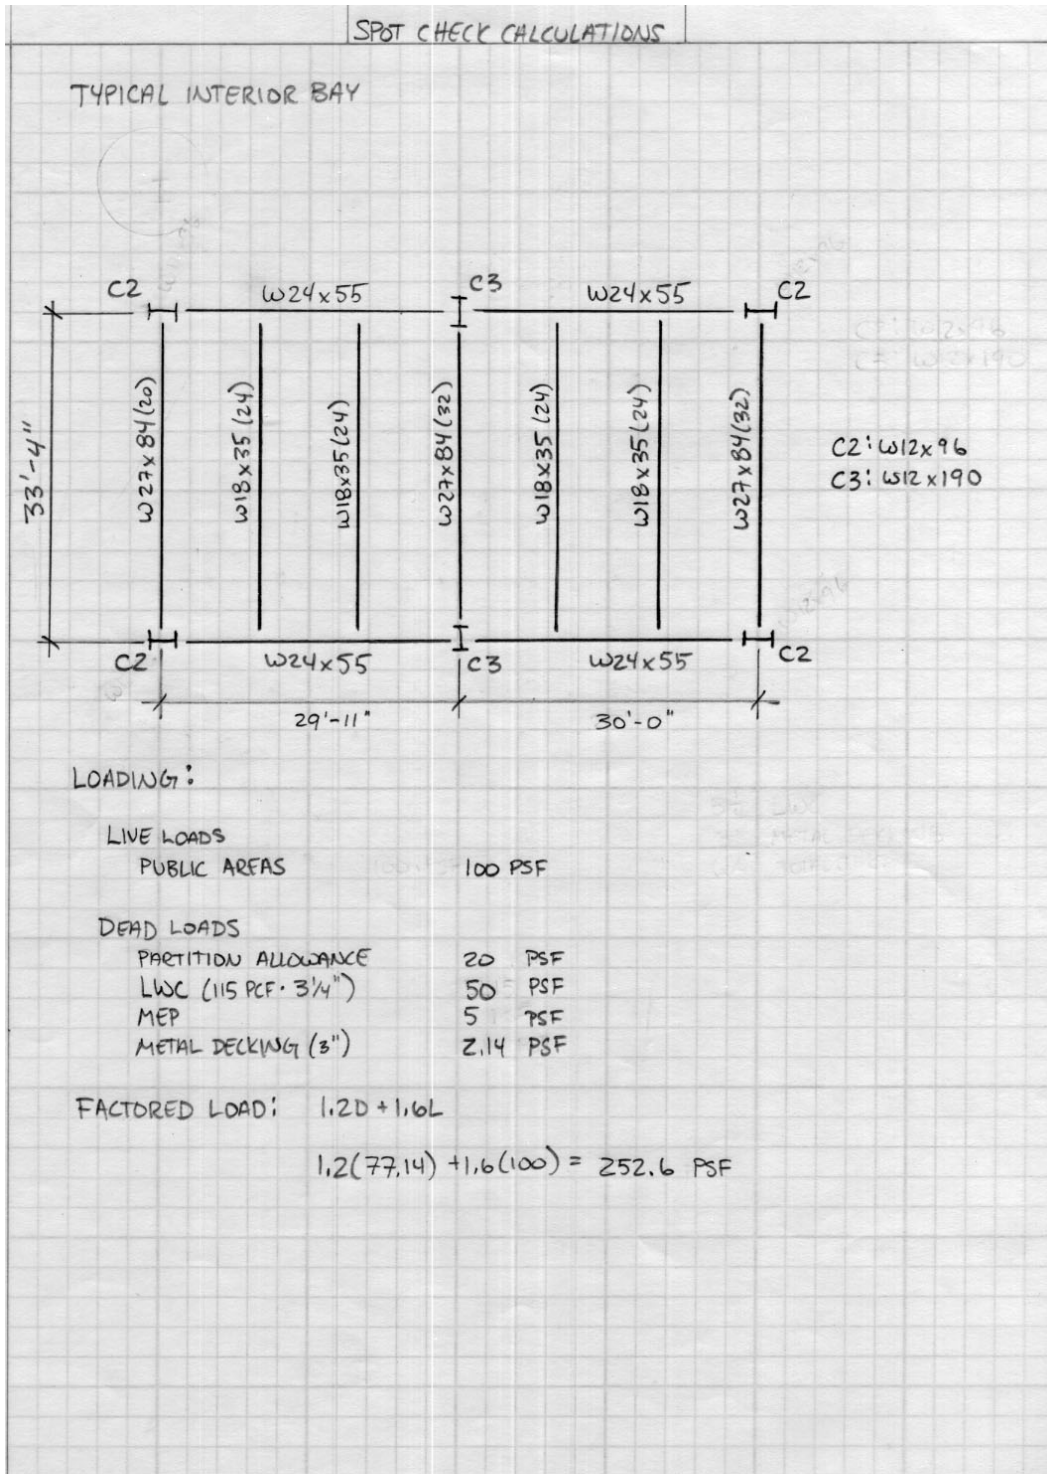 SPOT CHECK CALCULATIONS
TYPICAL INTERIOR BAY
C2 W24x55 C3 W24x55 C2
33'-4"
W27x84(20)
W18x35(24)
W18x35(24)
W27x84(32)
W18x35(24)
W18x35(24)
W27x84(32)
C2: W12x96
C3: W12x190
C2 W24x55 C3 W24x55 C2
29'-11" 30'-0"
LOADING:
LIVE LOADS
PUBLIC AREAS 100 PSF
DEAD LOADS
PARTITION ALLOWANCE 20 PSF
LWC (115 PCF · 3 1/4") 50 PSF
MEP 5 PSF
METAL DECKING (3") 2.14 PSF
FACTORED LOAD: 1.2D + 1.6L
1.2(77.14) + 1.6(100) = 252.6 PSF